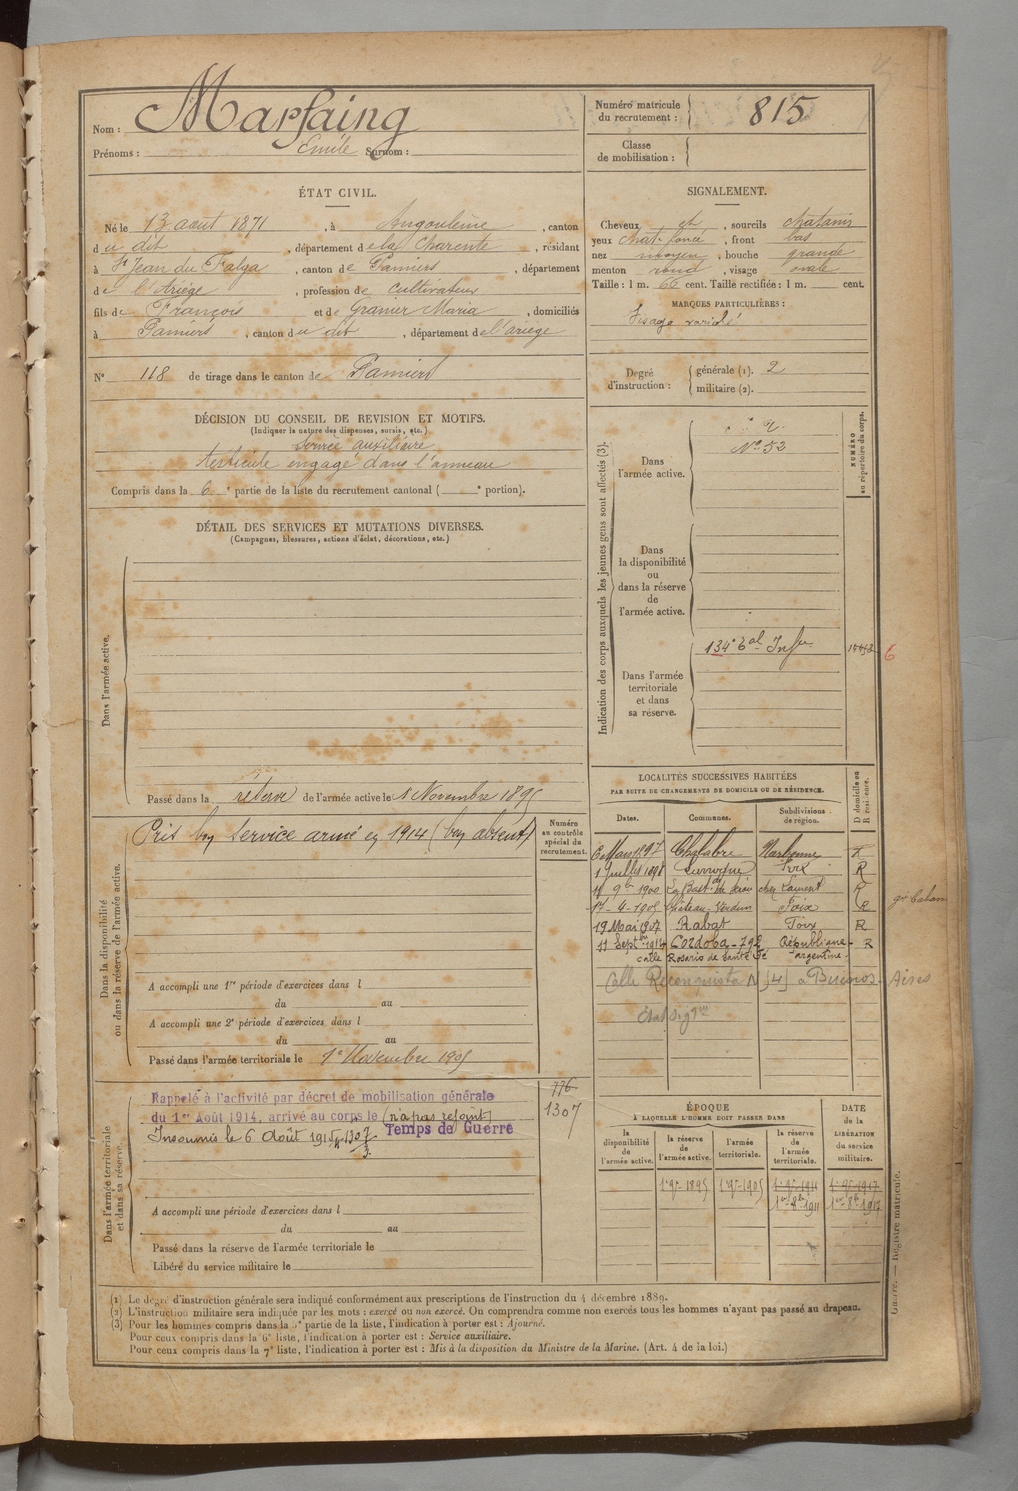 Nom : Marfaing
Prénoms : Emile Surnom :
Numéro matricule du recrutement : 815
Classe de mobilisation :
ÉTAT CIVIL.
Né le 13 août 1871, à Angoulême, canton
du dit, département de la Charente, résidant
à St Jean du Falga, canton de Pamiers, département
de l'Ariège, profession de cultivateur
fils de François et de Granier Maria, domiciliés
à Pamiers, canton du dit, département de l'ariège
N° 118 de tirage dans le canton de Pamiers
SIGNALEMENT.
Cheveux et, sourcils chatains
yeux chat. foncé, front bas
nez moyen, bouche grande
menton rond, visage ovale
Taille : 1 m. 66 cent. Taille rectifiée : 1 m. cent.
MARQUES PARTICULIÈRES :
Visage
Degré d'instruction : générale (1). 2
militaire (2).
DÉCISION DU CONSEIL DE REVISION ET MOTIFS.
(Indiquer la nature des dispenses, sursis, etc.)
Service auxiliaire
testicule engagé dans l'anneau
Compris dans la 6e partie de la liste du recrutement cantonal ( e portion).
DÉTAIL DES SERVICES ET MUTATIONS DIVERSES.
(Campagnes, blessures, actions d'éclat, décorations, etc.)
Dans l'armée active.
Passé dans la réserve de l'armée active le 1 Novembre 1895
Dans la disponibilité ou dans la réserve de l'armée active.
Pris bon service armé en 1914 (bon absent)
Numéro au contrôle spécial du recrutement.
A accompli une 1re période d'exercices dans l
du au
A accompli une 2e période d'exercices dans l
du au
Passé dans l'armée territoriale le 1er Novembre 1905
Dans l'armée territoriale et dans sa réserve.
Rappelé à l'activité par décret de mobilisation générale
du 1er Août 1914, arrivé au corps le (n'a pas rejoint)
Insoumis le 6 Août 1915 1307/3
Temps de Guerre
776
1307
A accompli une période d'exercices dans l
du au
Passé dans la réserve de l'armée territoriale le
Libéré du service militaire le
Indication des corps auxquels les jeunes gens sont affectés (3).
NUMÉRO au répertoire du corps.
Dans l'armée active.
N° 52
Dans la disponibilité ou dans la réserve de l'armée active.
Dans l'armée territoriale et dans sa réserve.
134e Bat Infie
6
LOCALITÉS SUCCESSIVES HABITÉES
PAR SUITE DE CHANGEMENTS DE DOMICILE OU DE RÉSIDENCE.
D domicile ou R résidence.
Dates. Communes. Subdivisions de région.
6 Mars 1897 Chalabre Narbonne
1 Juillet 1898 Foix R
9bre 1900 La Bastide de Sérou chez Laurent R
17-4-1905 Château-Verdun Foix R
19 Mai 1907 Rabat Foix R
11 Sept bre 1912 Cordoba-792 République R
calle Rosario de Santé Fé argentine.
Calle Reconquista N 547 à Buenos-Aires
ÉPOQUE
A LAQUELLE L'HOMME DOIT PASSER DANS
la disponibilité de l'armée active. la réserve de l'armée active. l'armée territoriale. la réserve de l'armée territoriale.
DATE de la LIBÉRATION du service militaire.
1er 9bre 1895 1er 9bre 1905 1er 9bre 1911 1er 9bre 1917
1er 8bre 1911 1er 8bre 1917
(1) Le degré d'instruction générale sera indiqué conformément aux prescriptions de l'instruction du 4 décembre 1889.
(2) L'instruction militaire sera indiquée par les mots : exercé ou non exercé. On comprendra comme non exercés tous les hommes n'ayant pas passé au drapeau.
(3) Pour les hommes compris dans la 5e partie de la liste, l'indication à porter est : Ajourné.
Pour ceux compris dans la 6e liste, l'indication à porter est : Service auxiliaire.
Pour ceux compris dans la 7e liste, l'indication à porter est : Mis à la disposition du Ministre de la Marine. (Art. 4 de la loi.)
Registre matricule.